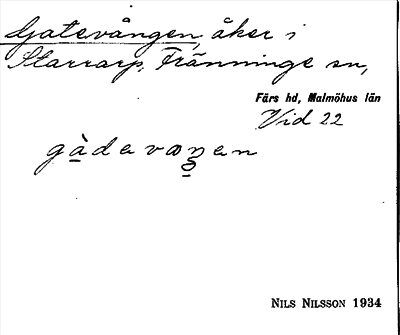 Gatevången, åker i
Starrarp, Fränninge sn,
Färs hd, Malmöhus län
Vid 22
NILS NILSSON 1934